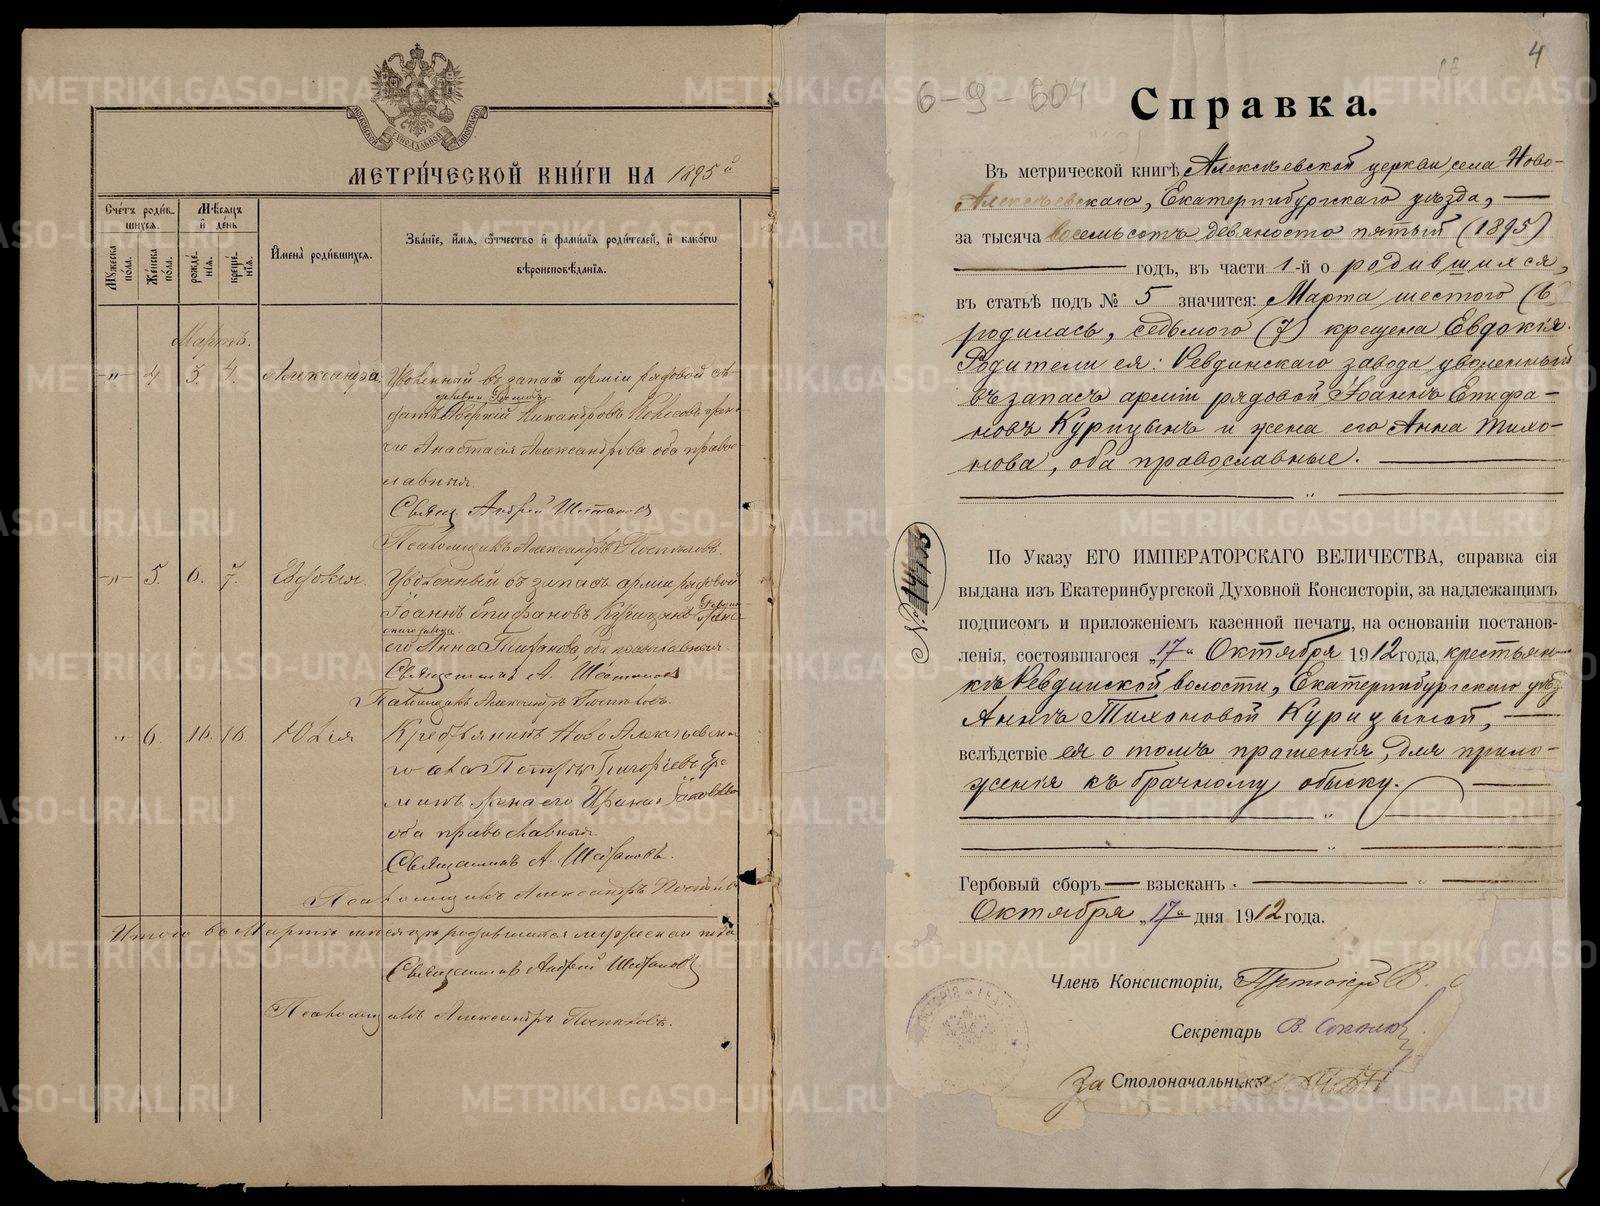 МЕТРИЧЕСКОЙ КНИГИ НА 1895й
Счетъ родив-
шихся.
Мужеска пола.
Женска пола.
Мѣсяцъ
и день
рожде-
нія.
креще-
нія.
Имена родившихся.
Званіе, имя, отчество и фамилія родителей, и какого
вѣроисповѣданія.
Мартъ.
-„- 4 3. 4. Александра Уволенный въ запасъ арміи рядовой
Никандровъ
Анастасія Александрова оба право-
славныя
Свящ. Андрей Шестаковъ
Псаломщикъ Александръ
-„- 5. 6. 7. Евдокія. Уволенный въ запасъ арміи рядовой
Іоаннъ Епифановъ Курицынъ
его Анна Тихонова, оба православныя
Священникъ А. Шестаковъ
Псаломщикъ Александръ
„ 6. 16. 18. Юлія Крестьянинъ Ново Алексѣевска-
го села Петръ Григорьевъ
жена его
оба православныя
Священникъ А. Шестаковъ.
Псаломщикъ Александръ
Итого въ Мартѣ мѣсяцѣ родившихся мужескаго пола
Священникъ Андрей Шестаковъ
Псаломщикъ Александръ
4
6-9-604
Справка.
Въ метрической книгѣ Алексѣевской церкви села Ново-
Алексѣевскаго, Екатеринбургскаго уѣзда,
за тысяча восемьсотъ девяносто пятый (1895)
годъ, въ части 1-й о родившихся,
въ статьѣ подъ № 5 значится: Марта шестого (6
родилась, седьмого (7) крещена Евдокія.
Родители ея: Ревдинскаго завода уволенный
въ запасъ арміи рядовой Іоаннъ Епифа-
новъ Курицынъ и жена его Анна Тихо-
нова, оба православные.
№
По Указу ЕГО ИМПЕРАТОРСКАГО ВЕЛИЧЕСТВА, справка сія
выдана изъ Екатеринбургской Духовной Консисторіи, за надлежащимъ
подписомъ и приложеніемъ казенной печати, на основаніи постанов-
ленія, состоявшагося „17“ Октября 1912 года, крестьян-
кѣ Ревдинской волости, Екатеринбургскаго уѣз.
Аннѣ Тихоновой Курицыной,
вслѣдствіе ея о томъ прошенія, для прило-
женія къ брачному обыску.
Гербовый сборъ взысканъ.
Октября „17“ дня 1912 года.
Членъ Консисторіи, Протоіерей В.
Секретарь В.
За Столоначальникъ
METRIKI.GASO-URAL.RU